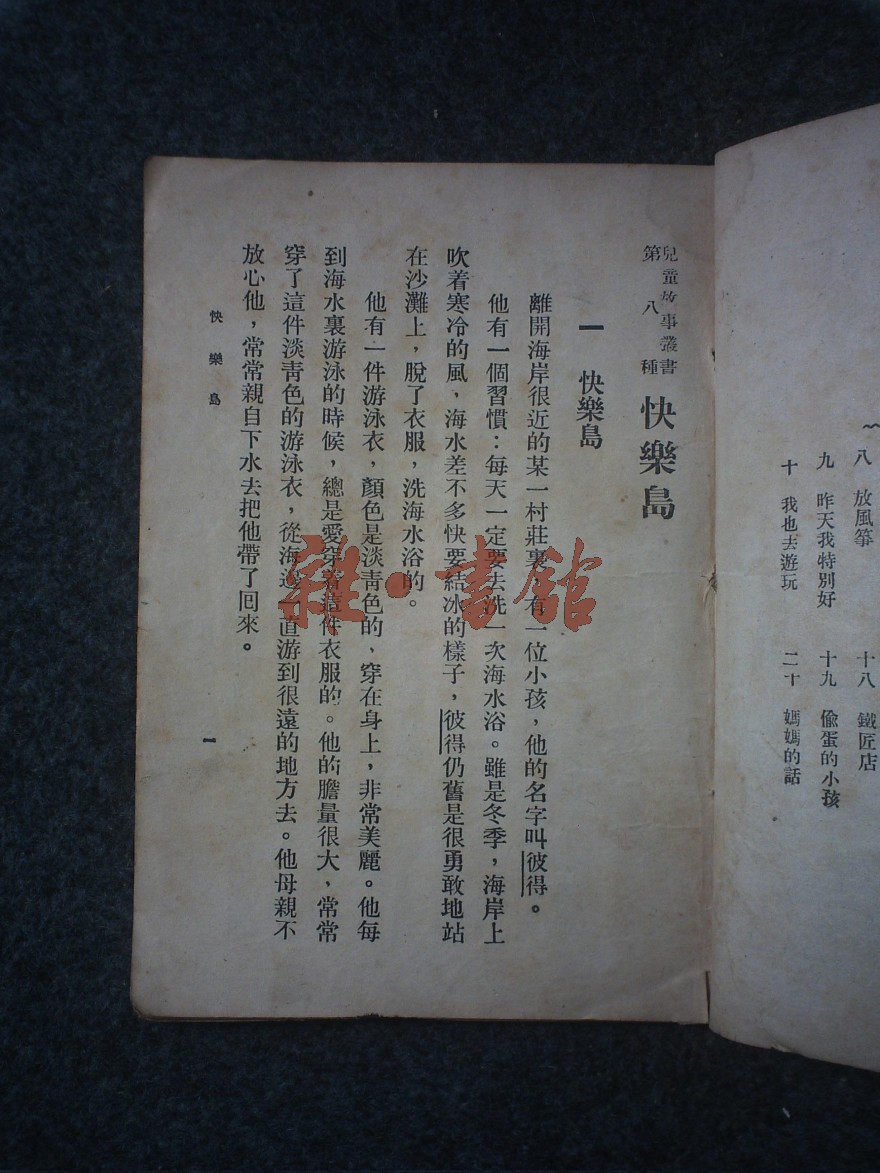 八　放風箏　十八　鐵匠店
九　昨天我特別好　十九　偷蛋的小孩
十　我也去遊玩　二十　媽媽的話
兒童故事叢書
第八種
快樂島
一　快樂島
離開海岸很近的某一村莊裏，有一位小孩，他的名字叫彼得。
他有一個習慣：每天一定要去洗一次海水浴。雖是冬季，海岸上
吹着寒冷的風，海水差不多快要結冰的樣子，彼得仍舊是很勇敢地站
在沙灘上，脫了衣服，洗海水浴的。
他有一件游泳衣，顏色是淡靑色的，穿在身上，非常美麗。他每
到海水裏游泳的時候，總是愛穿着這件衣服的。他的膽量很大，常常
穿了這件淡靑色的游泳衣，從海邊一直游到很遠的地方去。他母親不
放心他，常常親自下水去把他帶了回來。
快樂島
一
雜·書館